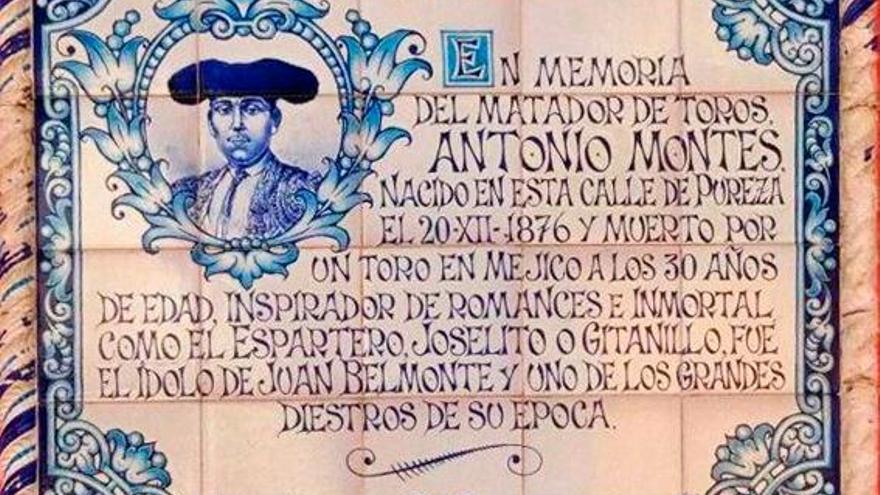 EN MEMORIA
DEL MATADOR DE TOROS,
ANTONIO MONTES,
NACIDO EN ESTA CALLE DE PUREZA
EL 20-XII-1876 Y MUERTO POR
UN TORO EN MEJICO A LOS 30 AÑOS
DE EDAD, INSPIRADOR DE ROMANCES E INMORTAL
COMO EL ESPARTERO, JOSELITO O GITANILLO, FUE
EL ÍDOLO DE JUAN BELMONTE Y UNO DE LOS GRANDES
DIESTROS DE SU EPOCA.